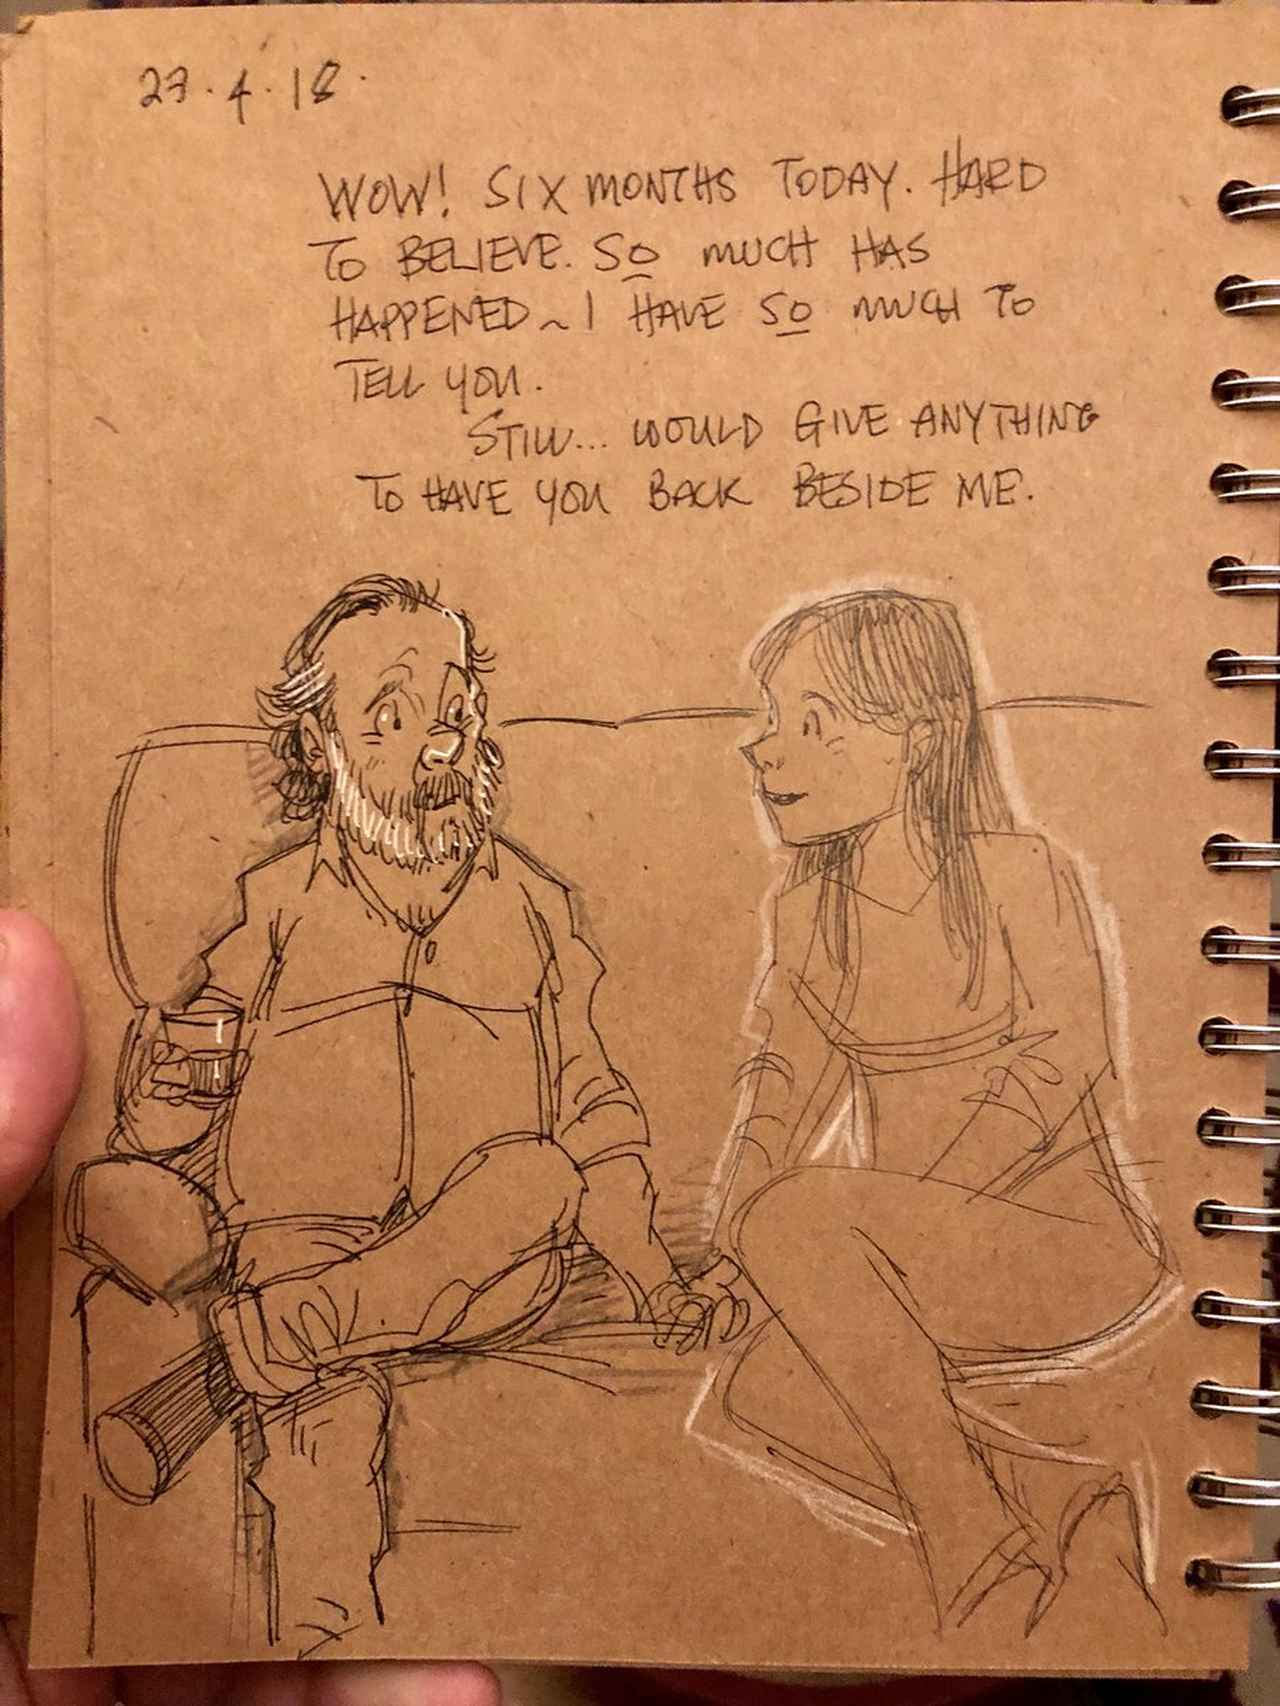 23.4.18.
WOW! SIX MONTHS TODAY. HARD
TO BELIEVE. SO MUCH HAS
HAPPENED ~ I HAVE SO MUCH TO
TELL YOU.
STILL... WOULD GIVE ANYTHING
TO HAVE YOU BACK BESIDE ME.